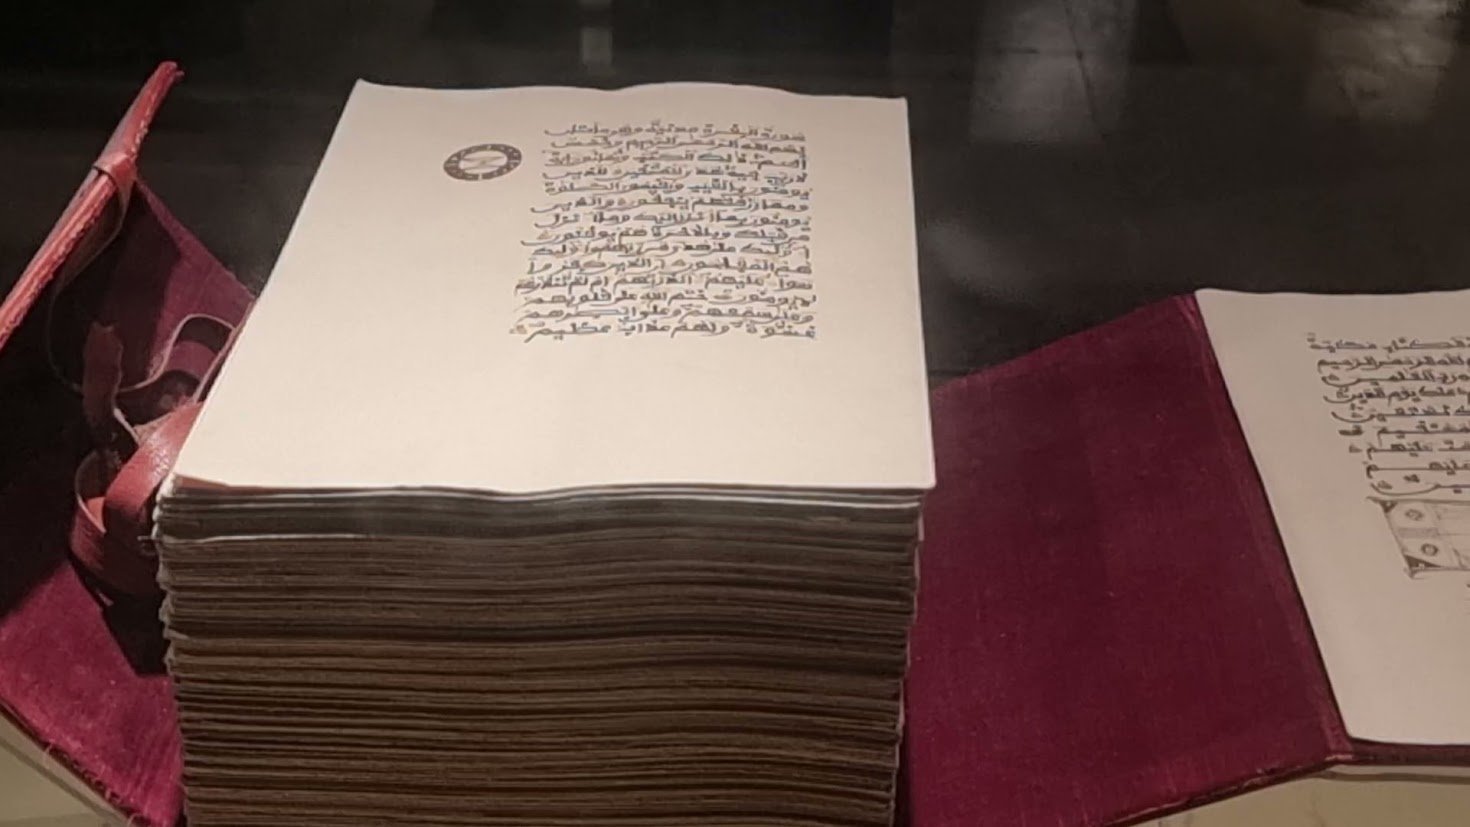 الكتاب مكية
الله الرحمن الرحيم
رب العلمين
ملك يوم الدين
نستعين
المستقيم
عليهم
عليهم
سورة البقرة مدنية وهي مائتان
بسم الله الرحمن الرحيم
الم ذلك الكتب
لا ريب فيه هدى للمتقين الذين
يومنون بالغيب ويقيمون الصلوة
ومما رزقنهم ينفقون والذين
يومنون بما أنزل إليك وما أنزل
من قبلك وبالاخرة هم يوقنون
أوليك على هدى من ربهم وأوليك
هم المفلحون إن الذين كفروا
سواء عليهم ءانذرتهم أم لم تنذرهم
لا يومنون ختم الله على قلوبهم
وعلى سمعهم وعلى أبصرهم
غشوة ولهم عذاب عظيم